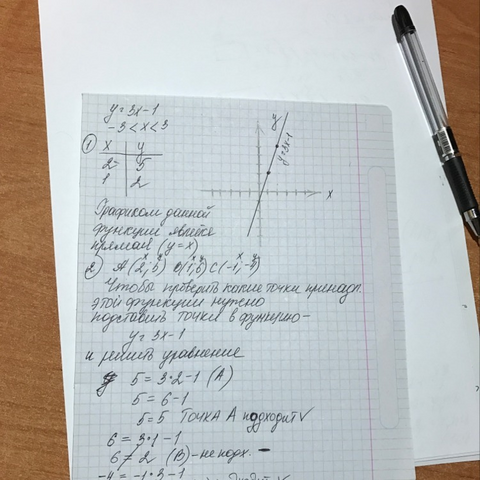 y = 3x - 1
-3 < x < 3
y
y = 3x-1
x
1
x y
2 5
1 2
Графиком данной
функции явлется
прямая (y = x)
2) A(2;5) B(1;6) C(-1;-4)
Чтобы проверить какие точки принадл.
этой функции нужно
подставить точки в функцию-
y = 3x-1
и решить уравнение
5 = 3·2-1 (A)
5 = 6-1
5=5 Точка A подходит V
6 = 3·1 -1
6 ≠ 2 (B) - не подх.
-4 = -1·3-1